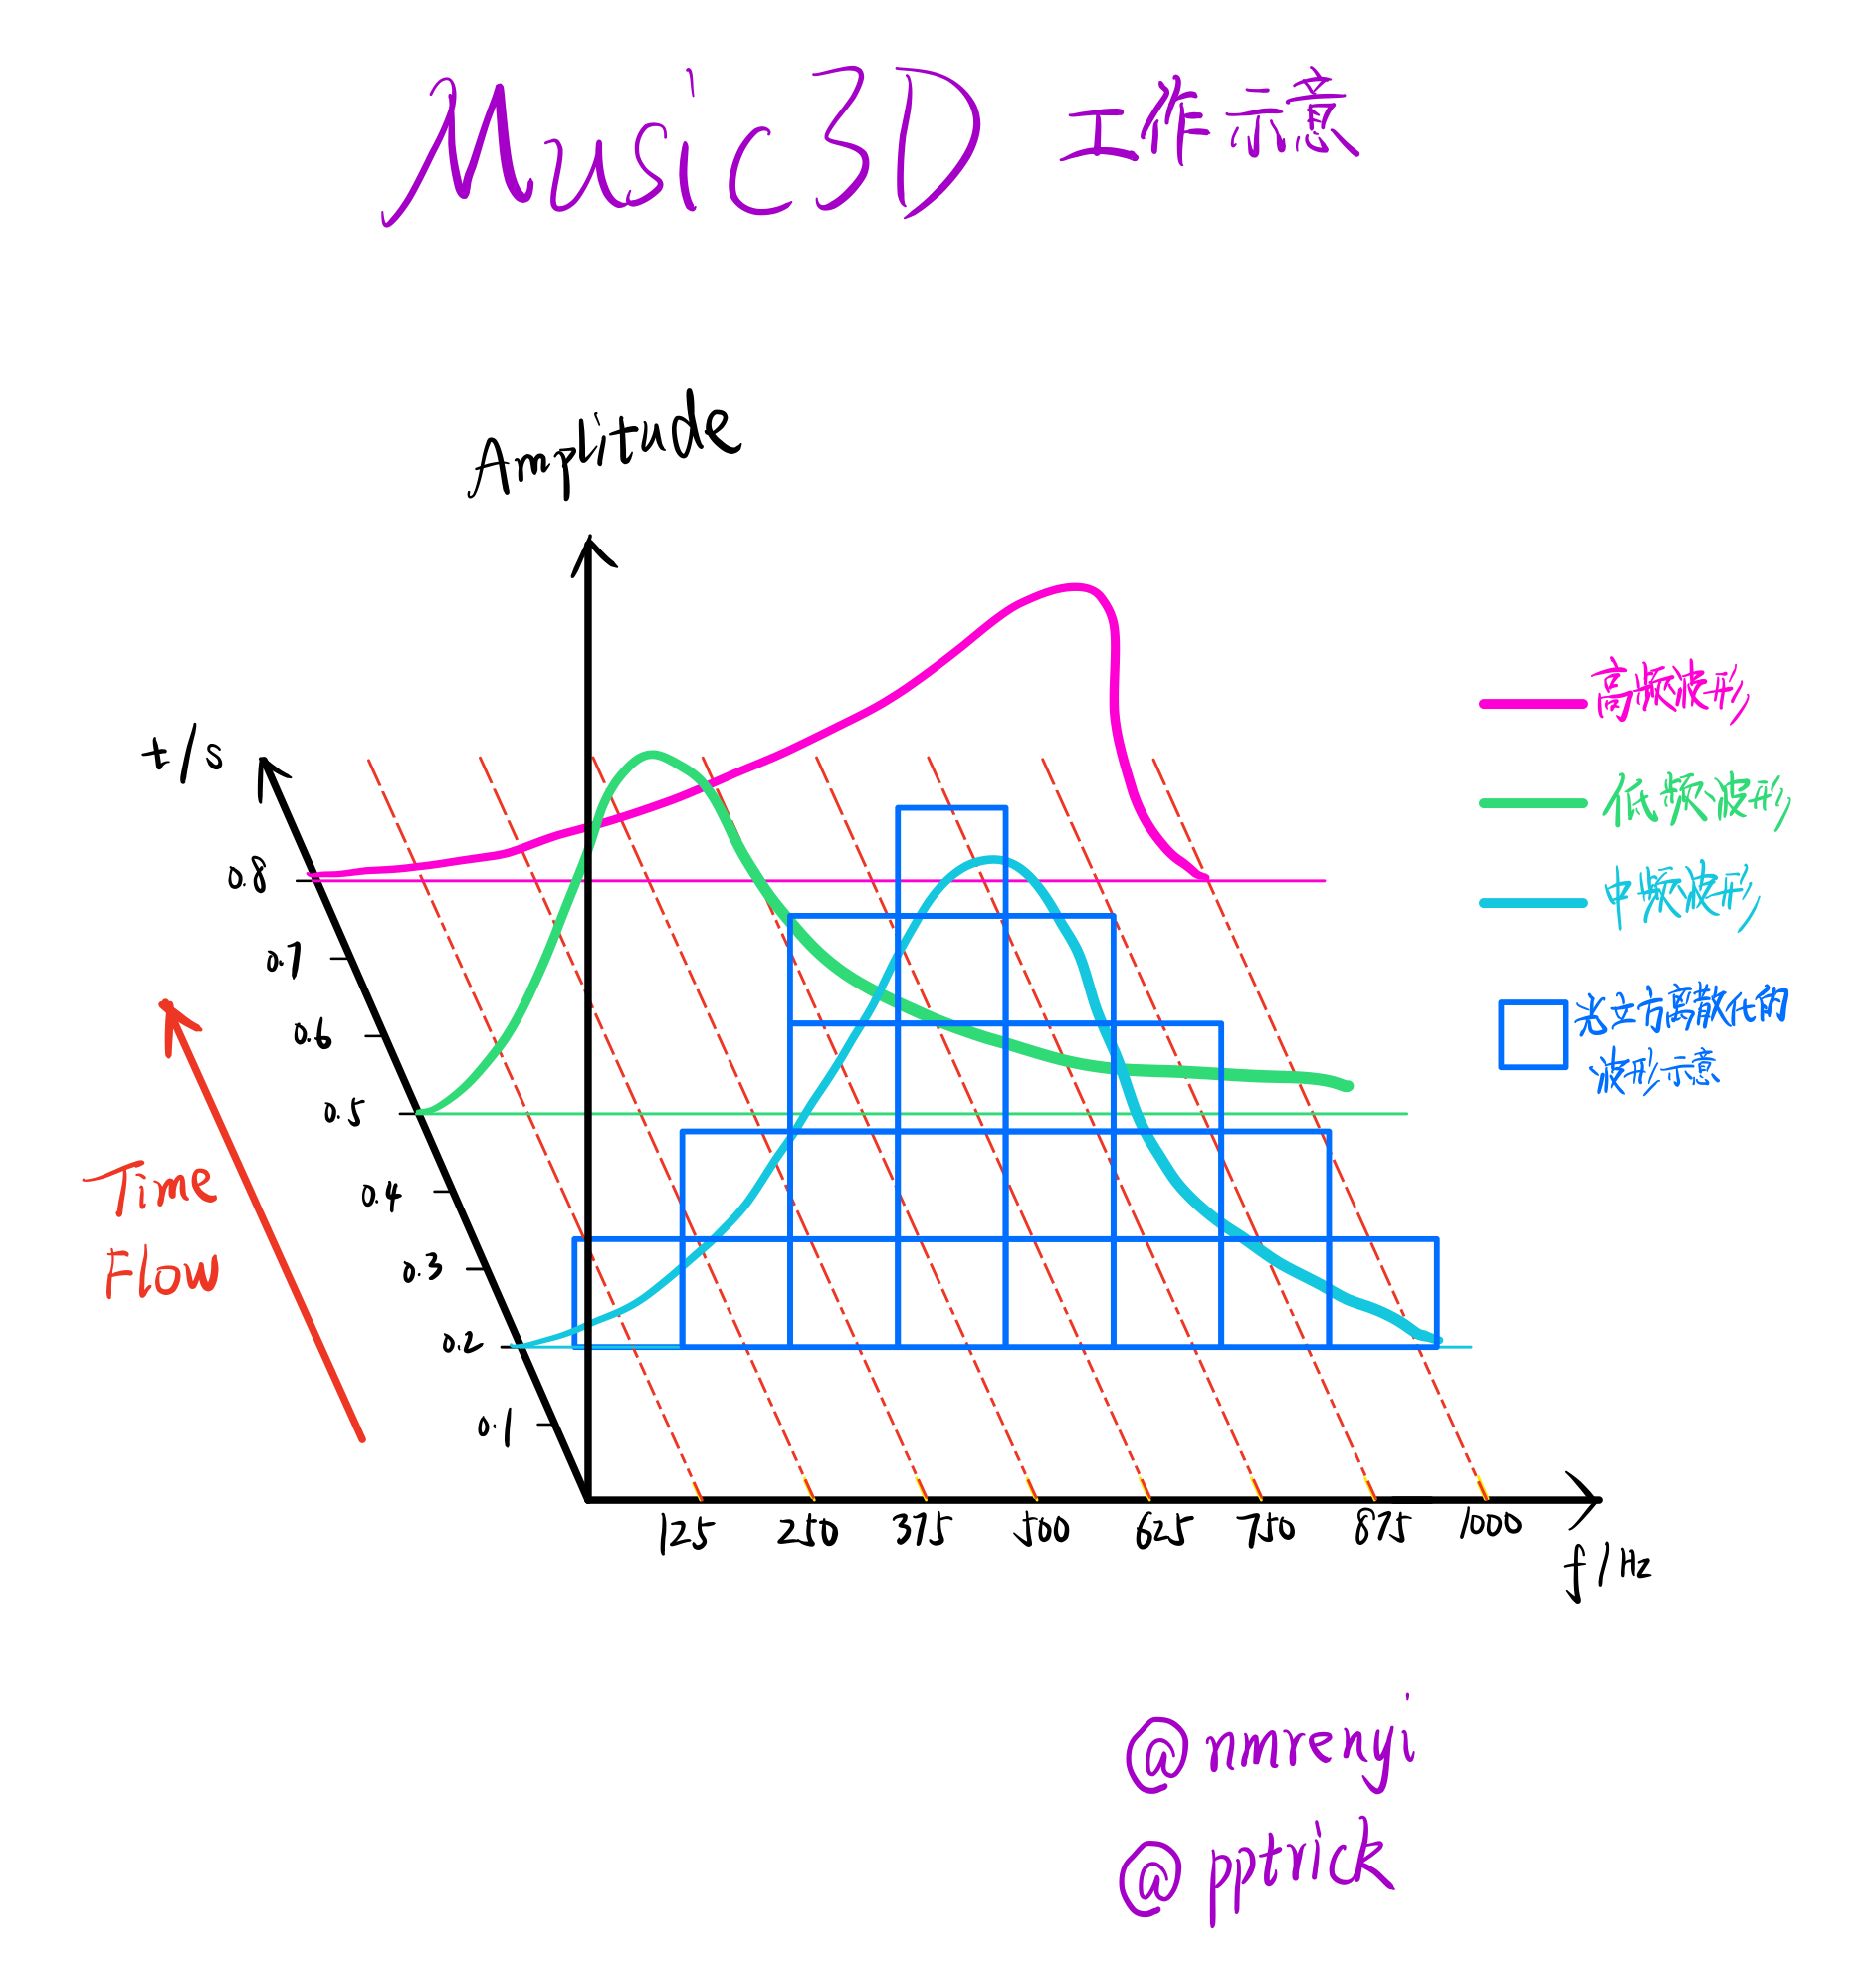 Music3D 工作示意
Amplitude
t/s
0.8
0.7
0.6
0.5
0.4
0.3
0.2
0.1
Time
Flow
125 250 375 500 625 750 875 1000
f/Hz
高频波形
低频波形
中频波形
光立方离散化的
波形示意
@nmrenyi
@pptrick